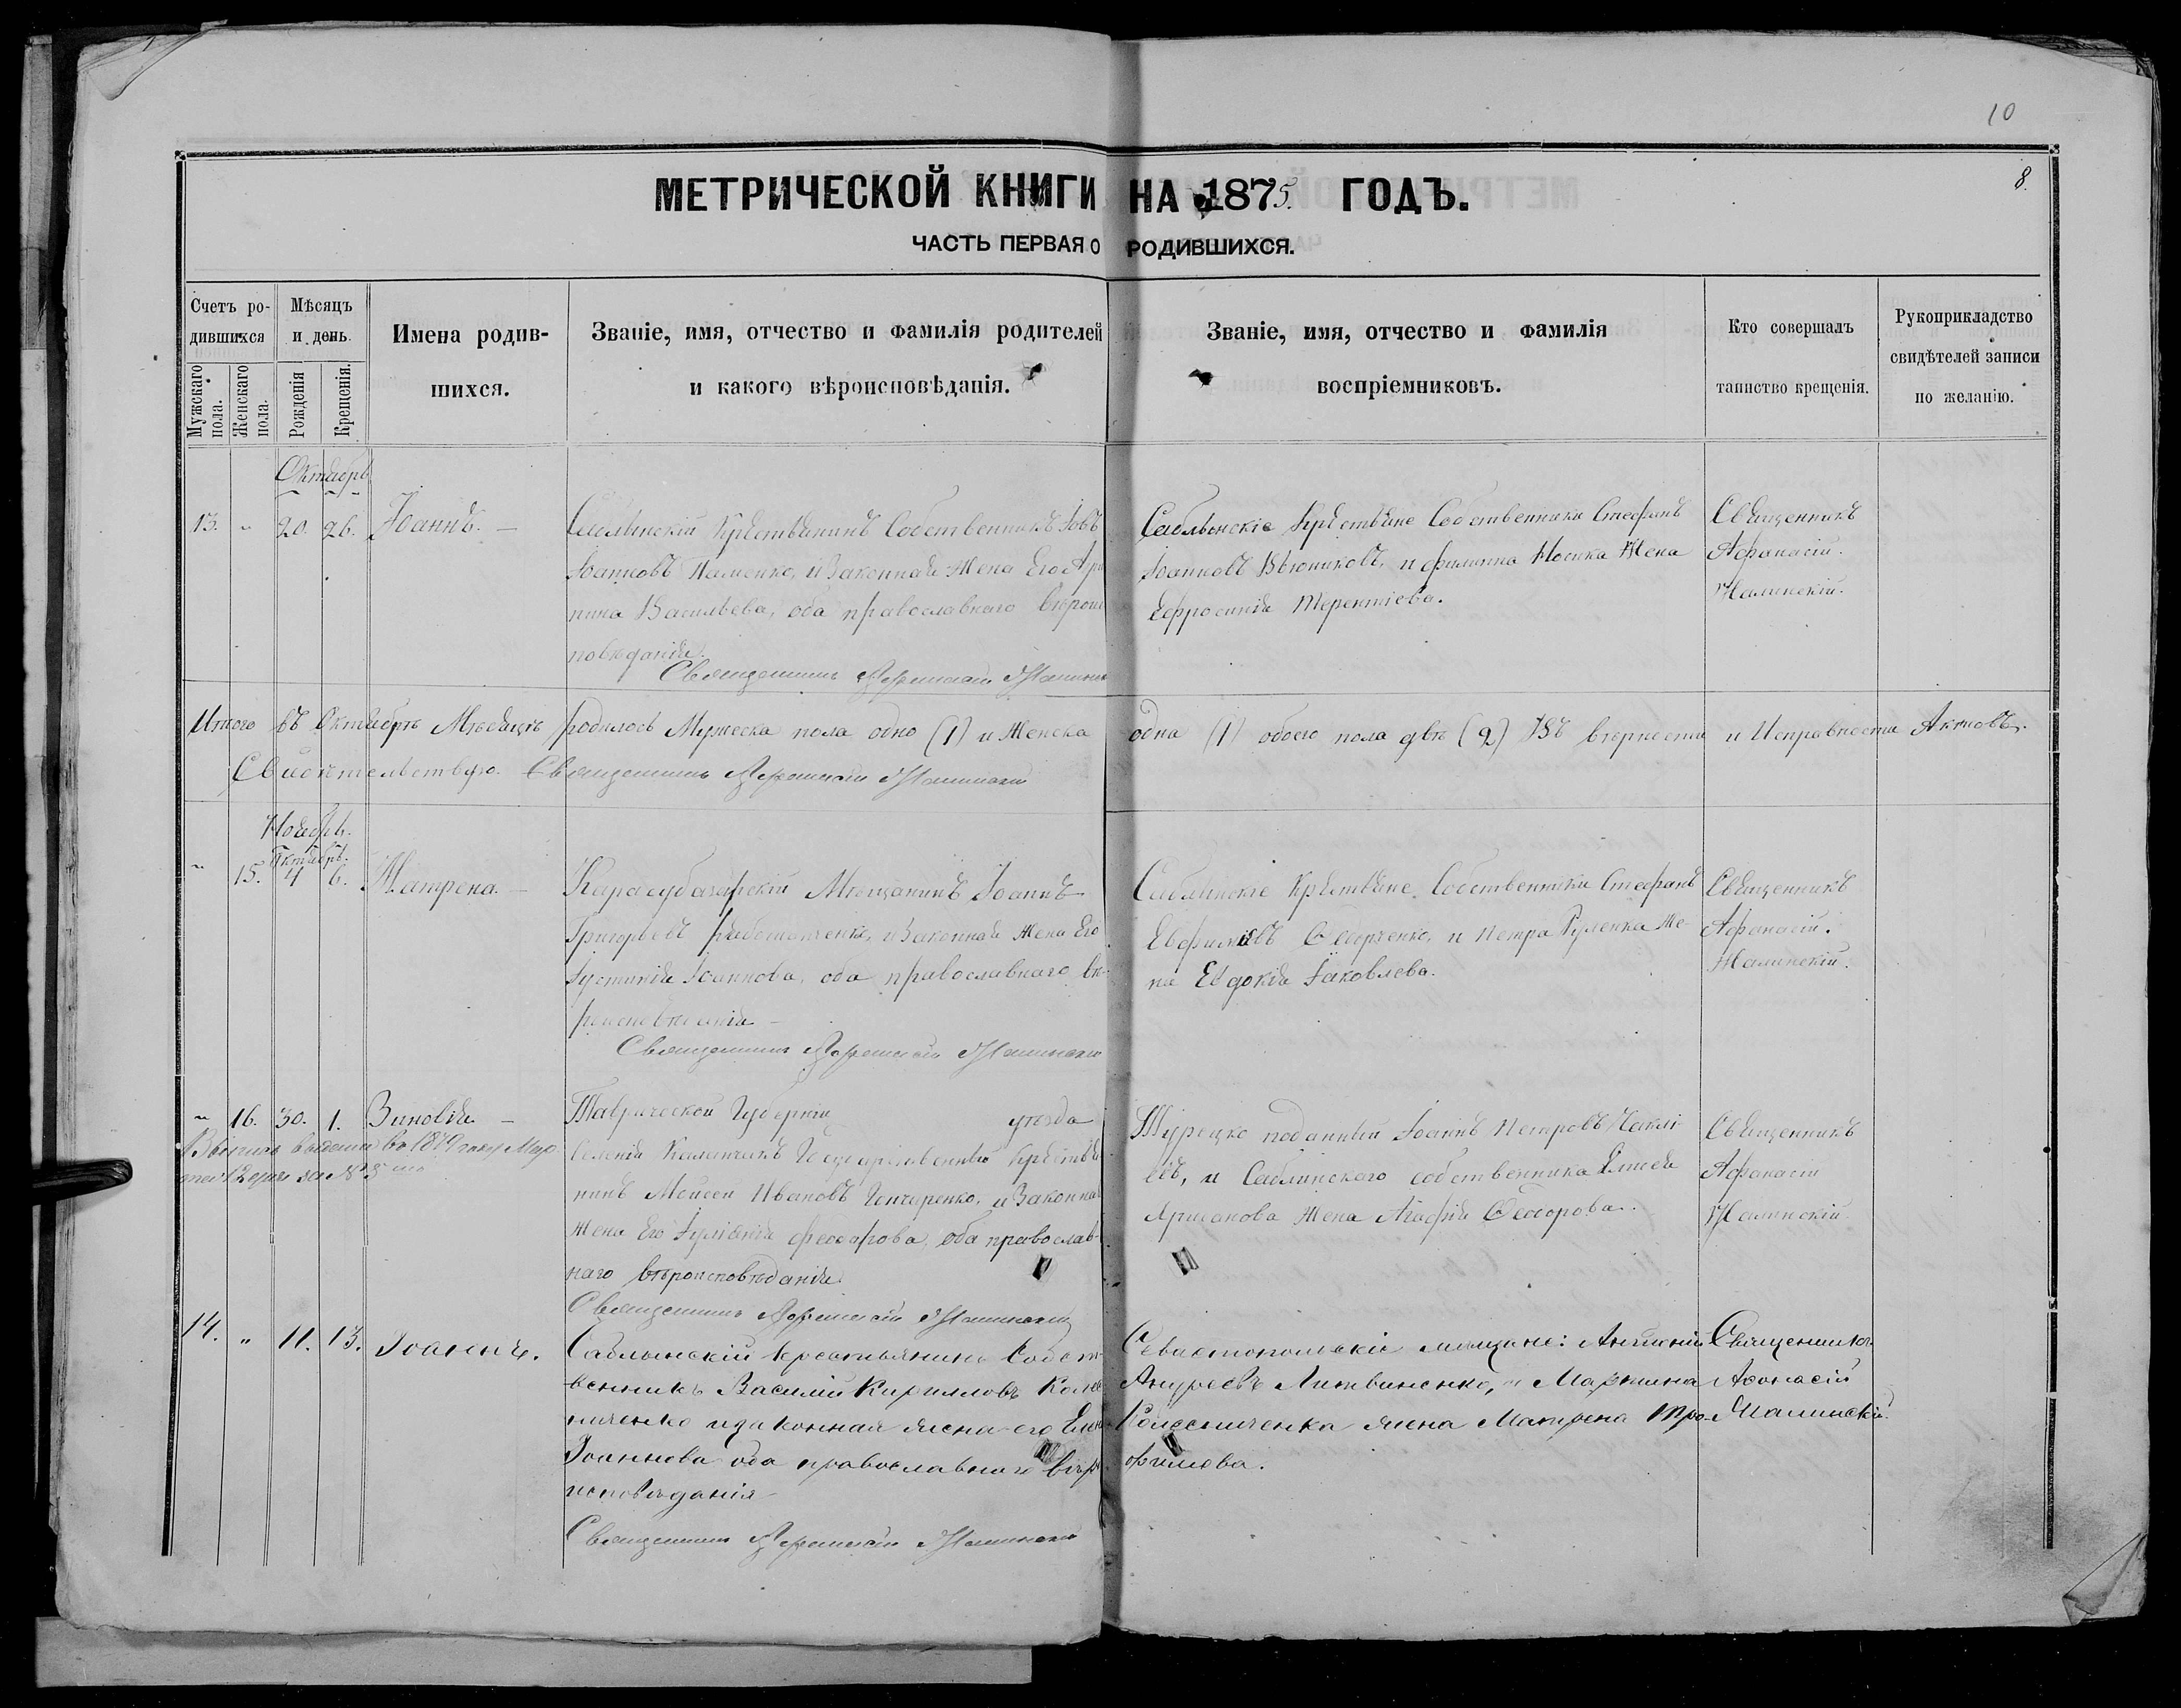 10
8.
МЕТРИЧЕСКОЙ КНИГИ НА 1875. ГОДЪ.
ЧАСТЬ ПЕРВАЯ О РОДИВШИХСЯ.
Счетъ родившихся
Мужскаго пола.
Женскаго пола.
Мѣсяцъ и день.
Рожденія
Крещенія.
Имена родив-
шихся.
Званіе, имя, отчество и фамилія родителей
и какого вѣроисповѣданія.
Званіе, имя, отчество и фамилія
воспріемниковъ.
Кто совершалъ
таинство крещенія.
Рукоприкладство
свидѣтелей записи
по желанію.
Октябрь
13. " 20. 26. Іоаннъ. —
Саблынскій Крѣстьянинъ Собственникъ Іовъ
Іоанновъ и Законная Жена Его
Васильева, оба православнаго вѣроис
повѣданія.
Священникъ Афанасій
Саблынскіе Крѣстьяне Собственники Стефанъ
Іоанновъ Вьюниковъ, и филиппа Носика Жена
Ефросинія Терентіева.
Священникъ
Афанасій.
Итого въ Октябрѣ Мѣсяцѣ родилось Мужеска пола одно (1) и Женска одна (1) обоего пола двѣ (2) Въ вѣрности и Исправности Актовъ.
Свидѣтельствую. Священникъ Афанасій
Ноябрь.
Октябрь.
" 15. 4 6. Матрена. —
Карасубазарскій Мѣщанинъ Іоаннъ
Григорьевъ и Законная Жена Его
Іустинія Іоаннова, оба православнаго вѣ-
роисповѣданія —
Священникъ Афанасій
Саблинскіе Крѣстьяне Собственники Стефанъ
Евфиміевъ Ѳедорченко, и Петра Руленка Же
на Евдокія Іаковлева.
Священникъ
Афанасій.
" 16. 30. 1. Зиновія —
Выпись выдана въ 1879 году
12 дня за № 5
Таврической Губерніи уѣзда
Селенія Каланчакъ Государственный Крѣстья
нинъ Моисей Ивановъ Гончаренко, и Законная
Жена Его Іуліанія феодорова, оба православ-
наго вѣроисповѣданія.
Священникъ Афанасій
Турецко подданный Іоаннъ Петровъ
и Саблинскаго собственника Елисея
Жена Агафія Ѳеодорова.
Священникъ
Афанасій
14. " 11. 13. Іоаннъ.
Саблынскій крестьянинъ Собст-
венникъ Василій Кирилловъ Колес
ниченко и законная жена его Елена
Іоаннова оба православнаго вѣро
исповѣданія
Священникъ Афанасій
Севастопольскіе мѣщане: Антоній
Андреевъ Литвиненко, и Мартина
Колесниченка жена Матрона Тро-
фимова.
Священникъ
Аѳонасій